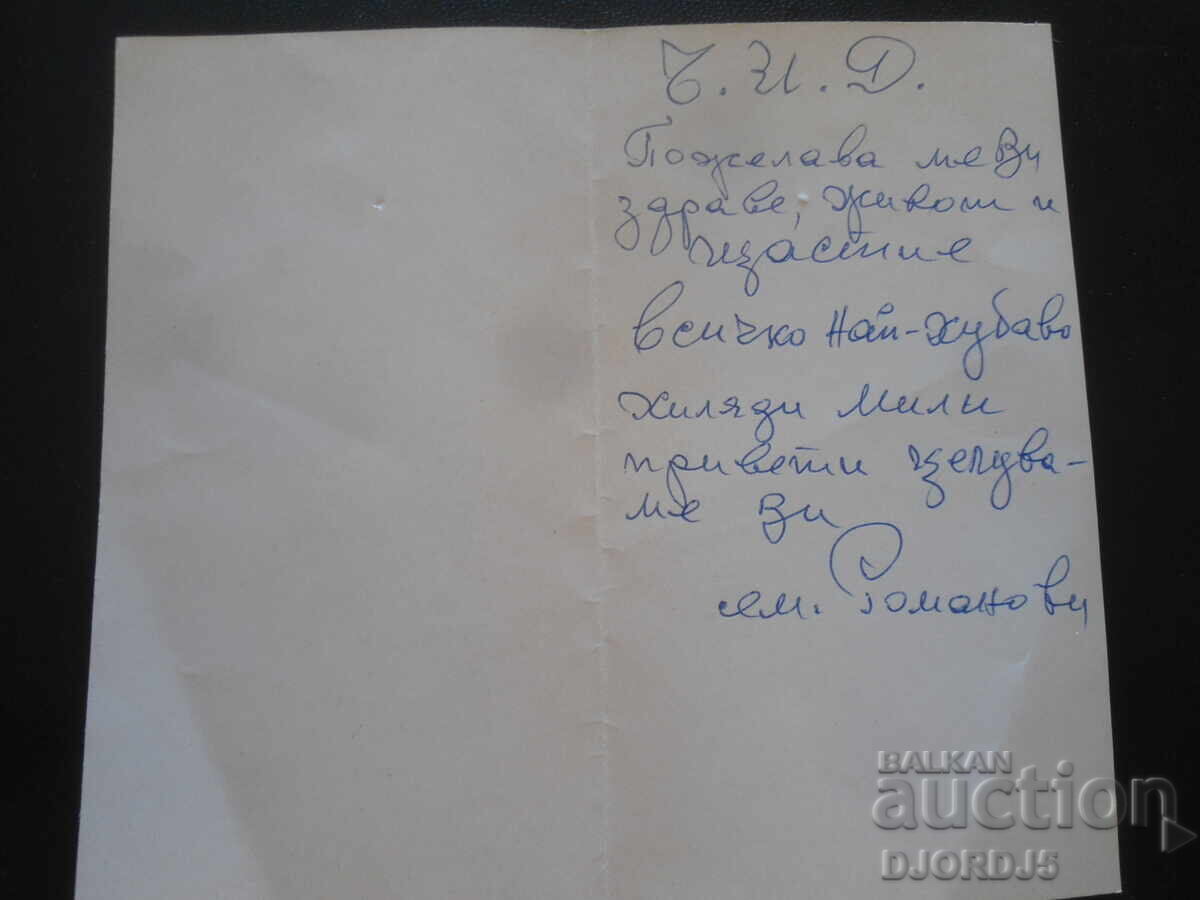 Ч.И.Д.
Пожелава ме Ви
здраве, живот и
щастие
всичко най-хубаво
хиляди мили
привети целува-
ме Ви
сем. Романови
BALKAN
auction
DJORDJ5